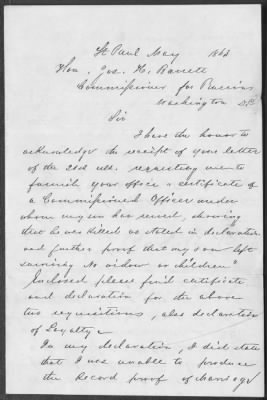 St Paul May 1863
Hon. Jos. H. Barrett
Commissioner for Pensions
Washington D.C.
Sir
I have the honor to
acknowledge the receipt of your letter
of the 23d ult. requesting me to
furnish your office a certificate of
a Commissioned Officer under
whom my son has served, showing
that he was killed as stated in declaration
and further proof that my son left
surviving no widow or children"
Enclosed please find certificate
and declaration for the above
two requisitions, also declaration
of Loyalty
In my declaration, I did state
that I was unable to produce
the Record proof of marriage